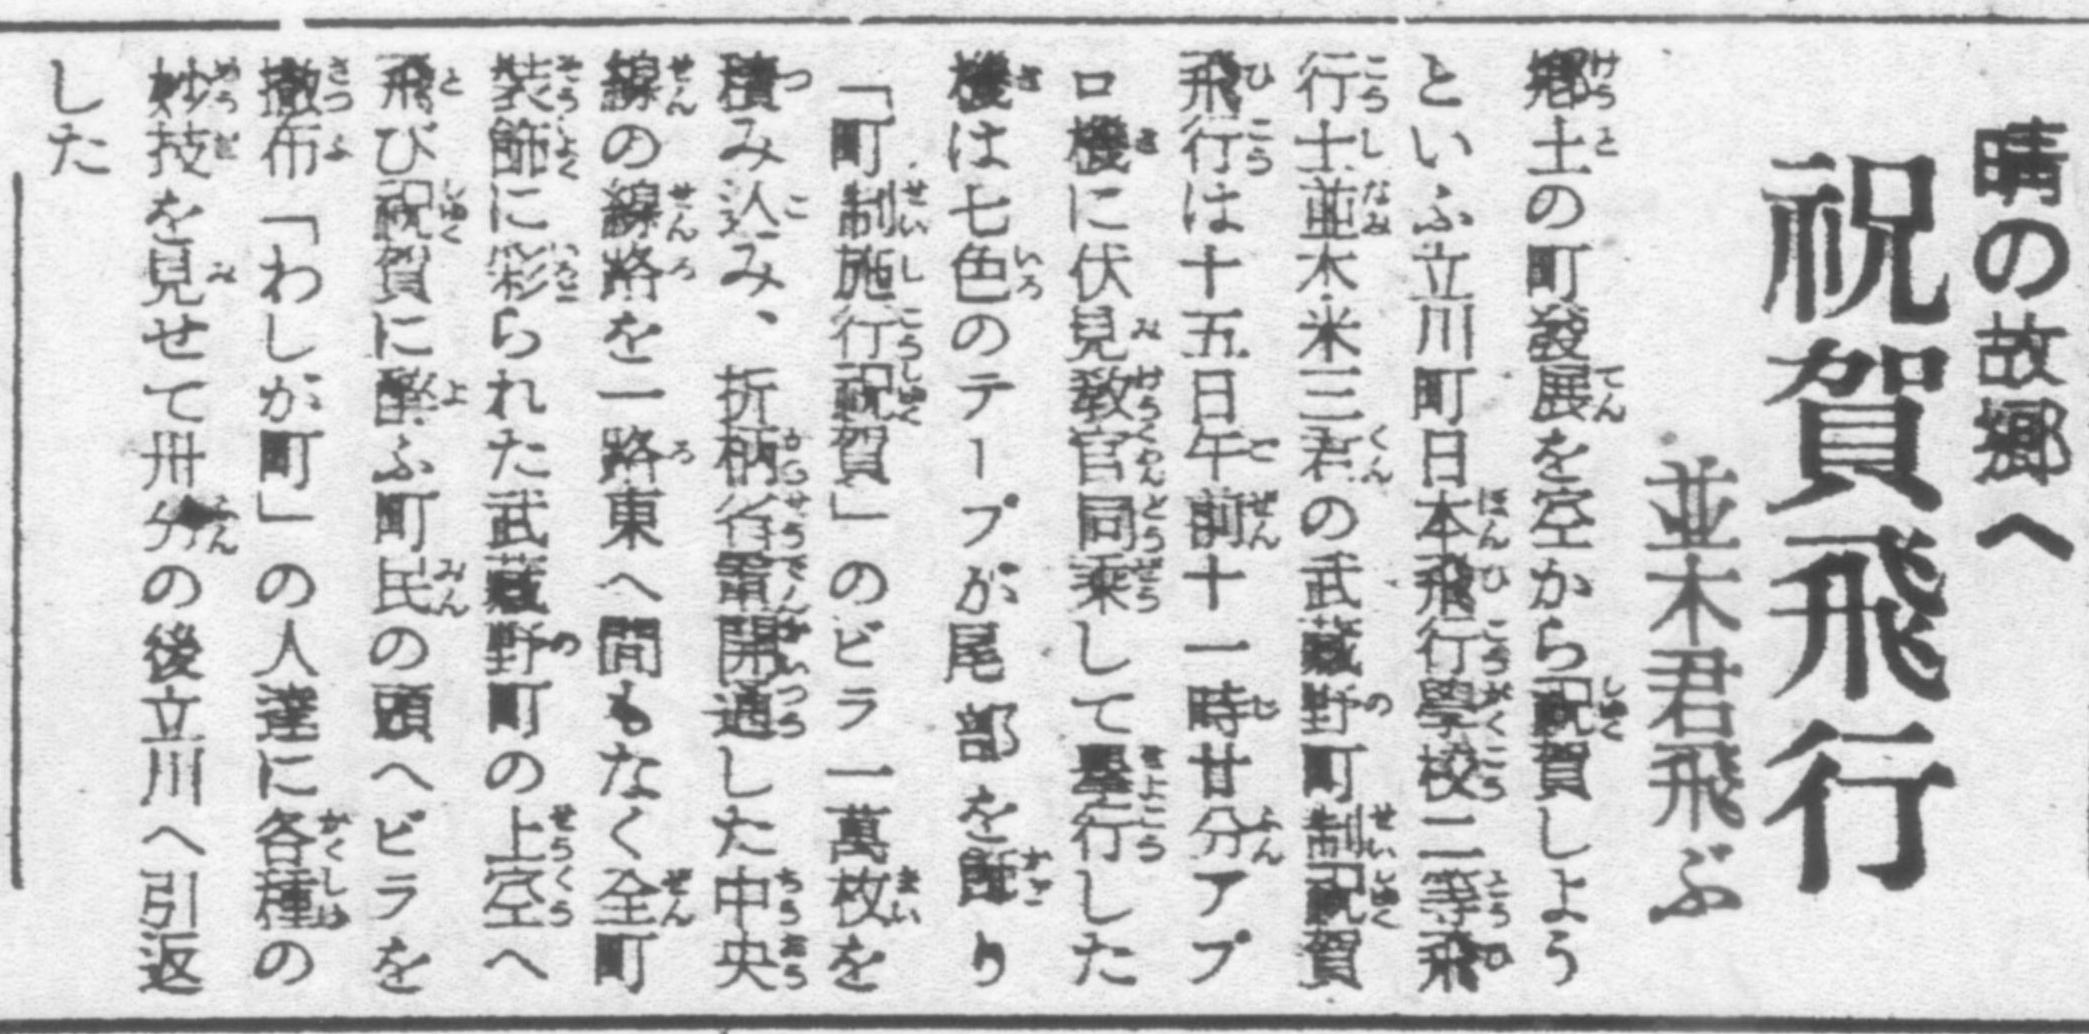 晴の故郷へ
祝賀飛行
並木君飛ぶ
郷土の町發展を空から祝賀しよう
といふ立川町日本飛行學校二等飛
行士並木米三君の武藏野町制祝賀
飛行は十五日午前十一時廿分アブ
ロ機に伏見教官同乘して擧行した
機は七色のテープが尾部を飾り
「町制施行祝賀」のビラ一萬枚を
積み込み、折柄省電開通した中央
線の線路を一路東へ間もなく全町
装飾に彩られた武藏野町の上空へ
飛び祝賀に醉ふ町民の頭へビラを
撒布「わしが町」の人達に各種の
妙技を見せて卅分の後立川へ引返
した